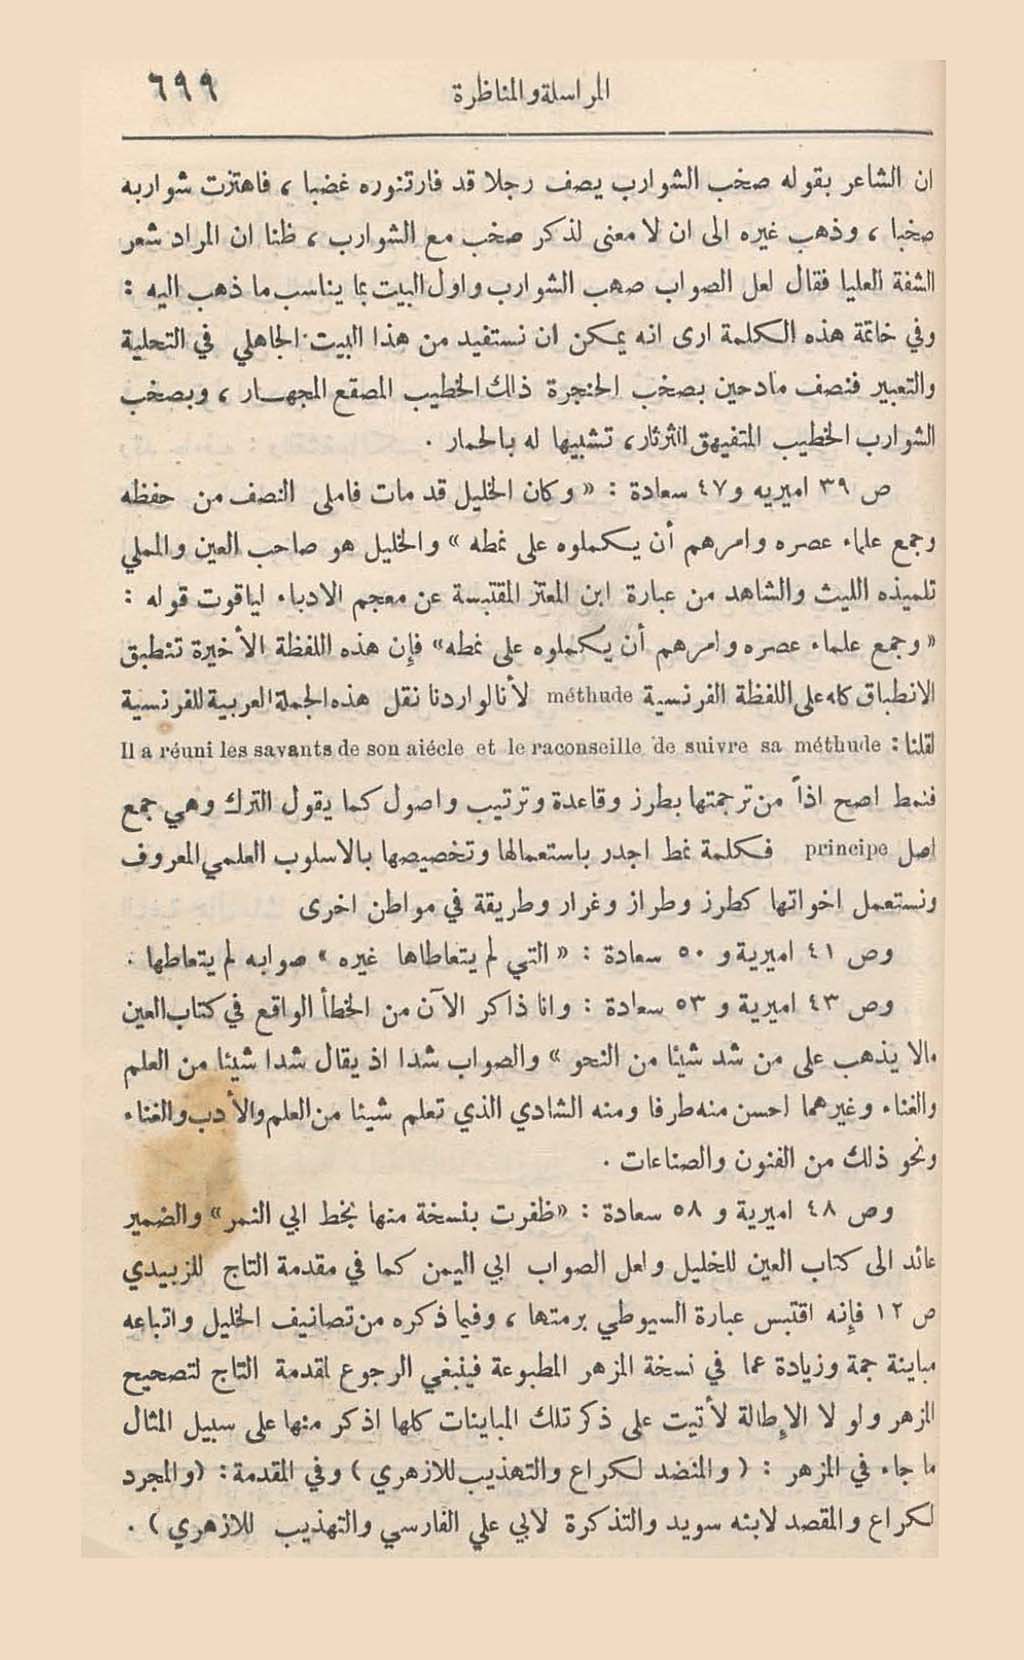 ٦٩٩
المراسلة والمناظرة
ان الشاعر بقوله صخب الشوارب يصف رجلا قد فارتنوره غضبا ، فاهتزت شواربه
صخبا ، وذهب غيره الى ان لا معنى لذكر صخب مع الشوارب ، ظنا ان المراد شعر
الشفة العليا فقال لعل الصواب صهب الشوارب واول البيت بما يناسب ما ذهب اليه :
وفي خاتمة هذه الكلمة ارى انه يمكن ان نستفيد من هذا البيت الجاهلي في التحلية
والتعبير فنصف مادحين بصخب الحنجرة ذاك الخطيب المصقع المجهـار ، وبصخب
الشوارب الخطيب المتفيهق الثرثار ، تشبيها له بالحمار .
ص ٣٩ اميريه و ٤٧ سعادة : « وكان الخليل قد مات فاملى النصف من حفظه
وجمع علماء عصره وامرهم أن يكملوه على نمطه » والخليل هو صاحب العين والمملي
تلميذه الليث والشاهد من عبارة ابن المعتز المقتبسة عن معجم الادباء لياقوت قوله :
« وجمع علماء عصره وامرهم أن يكملوه على نمطه » فإن هذه اللفظة الأخيرة تنطبق
الانطباق كله على اللفظة الفرنسية méthude لأنا لو اردنا نقل هذه الجملة العربية للفرنسية
لقلنا : Il a réuni les savants de son aiécle et le raconseille de suivre sa méthude
فنمط اصح اذاً من ترجمتها بطرز وقاعدة وترتيب واصول كما يقول الترك وهي جمع
اصل principe فكلمة نمط اجدر باستعمالها وتخصيصها بالاسلوب العلمي المعروف
ونستعمل اخواتها كطرز وطراز وغرار وطريقة في مواطن اخرى
وص ٤١ اميرية و ٥٠ سعادة : « التي لم يتعاطاها غيره » صوابه لم يتعاطها .
وص ٤٣ اميرية و ٥٣ سعادة : وانا ذاكر الآن من الخطأ الواقع في كتاب العين
مالا يذهب على من شد شيئا من النحو » والصواب شدا اذ يقال شدا شيئا من العلم
والغناء وغيرهما احسن منه طرفا ومنه الشادي الذي تعلم شيئا من العلم والأدب والغناء
ونحو ذلك من الفنون والصناعات .
وص ٤٨ اميرية و ٥٨ سعادة : «ظفرت بنسخة منها بخط ابي النمر» والضمير
عائد الى كتاب العين للخليل ولعل الصواب ابي اليمن كما في مقدمة التاج للزبيدي
ص ١٢ فإنه اقتبس عبارة السيوطي برمتها ، وفيما ذكره من تصانيف الخليل واتباعه
مباينة جمة وزيادة عما في نسخة المزهر المطبوعة فينبغي الرجوع لمقدمة التاج لتصحيح
المزهر ولو لا الإطالة لأتيت على ذكر تلك المباينات كلها اذكر منها على سبيل المثال
ما جاء في المزهر : ( والمنضد لكراع والتهذيب للازهري ) وفي المقدمة : (والمجرد
لكراع والمقصد لابنه سويد والتذكرة لابي علي الفارسي والتهذيب للازهري ) .